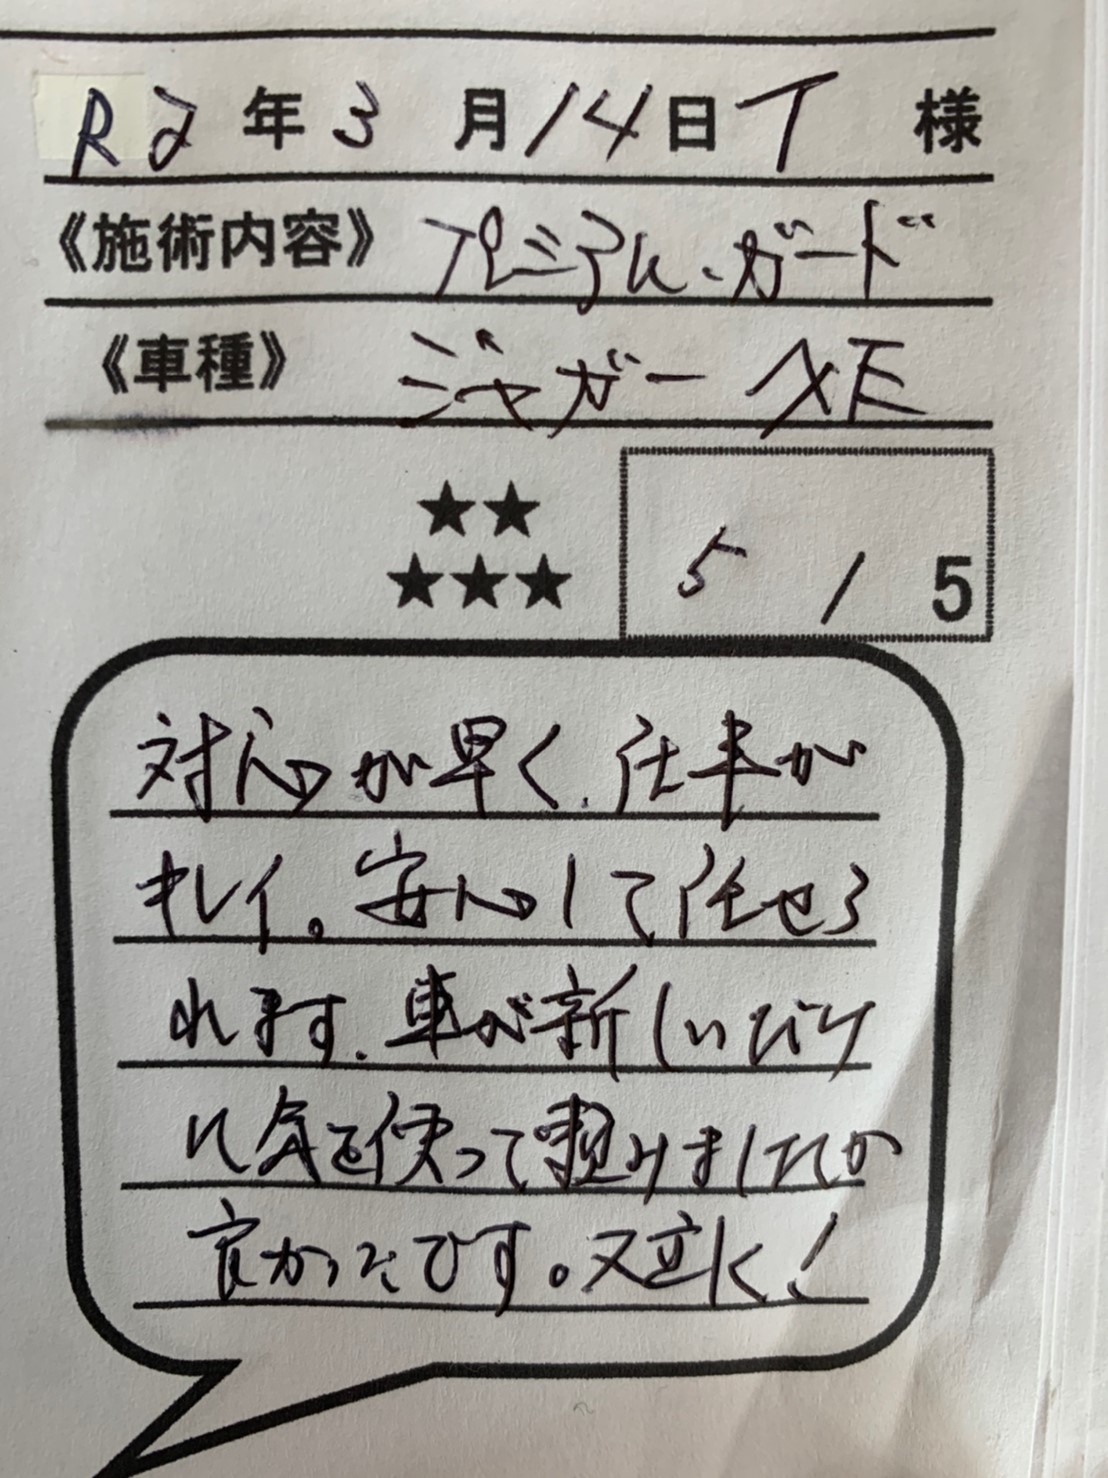 R2年3月14日T様
《施術内容》プレミアム・ガード
《車種》ジャガー XE
★★
★★★
5/5
対応が早く、仕事が
キレイ。安心して任せら
れます。車が新しいだけ
に気を使って頼みましたが
良かったです。又並に!